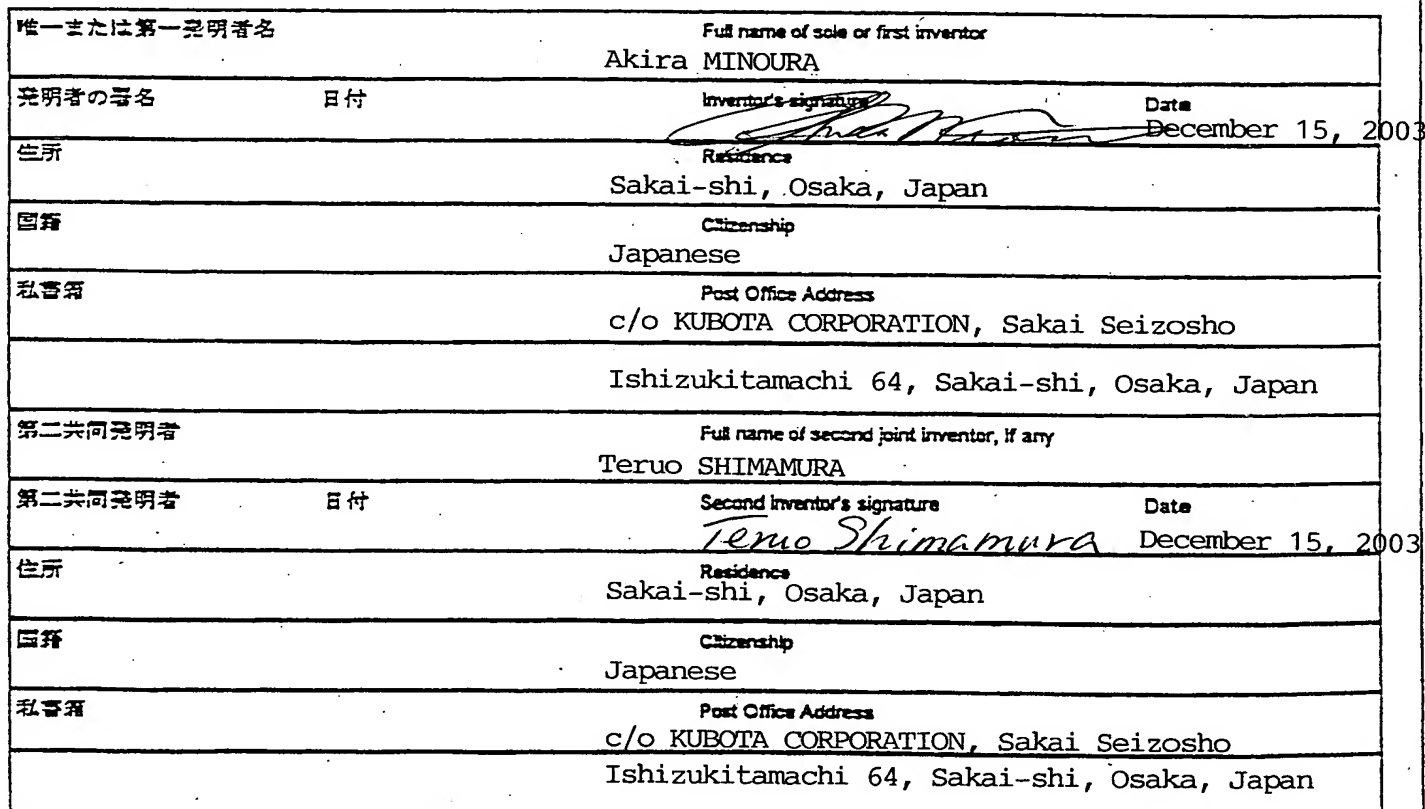 唯一または第一発明者名 Full name of sole or first inventor
Akira MINOURA
発明者の署名 日付 Inventor's signature Date
December 15, 2003
住所 Residence
Sakai-shi, Osaka, Japan
国籍 Citizenship
Japanese
私書箱 Post Office Address
c/o KUBOTA CORPORATION, Sakai Seizosho
Ishizukitamachi 64, Sakai-shi, Osaka, Japan
第二共同発明者 Full name of second joint inventor, if any
Teruo SHIMAMURA
第二共同発明者 日付 Second inventor's signature Date
Teruo Shimamura December 15, 2003
住所 Residence
Sakai-shi, Osaka, Japan
国籍 Citizenship
Japanese
私書箱 Post Office Address
c/o KUBOTA CORPORATION, Sakai Seizosho
Ishizukitamachi 64, Sakai-shi, Osaka, Japan